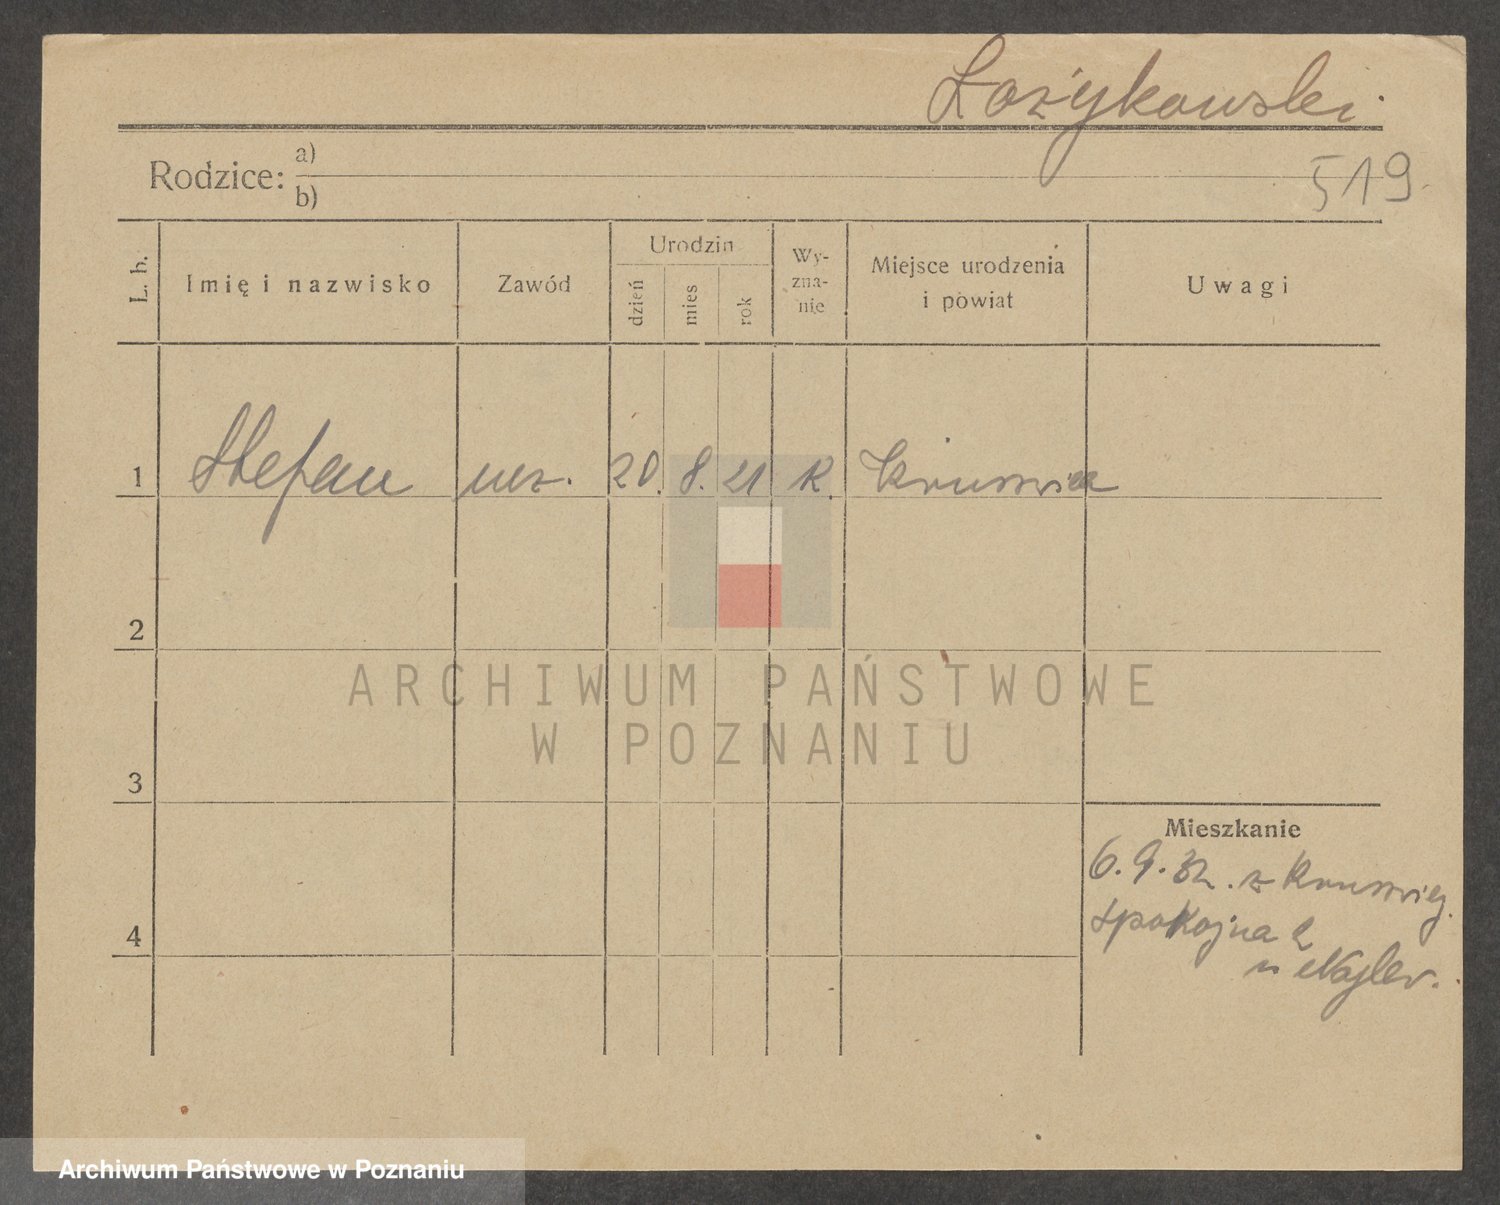 Łożykowski.
519
Rodzice: a)
b)
L. b.
Imię i nazwisko
Zawód
Urodzin
dzień
mies
rok
Wy-
zna-
nie
Miejsce urodzenia
i powiat
Uwagi
1 Stefan ucz. 20. 8. 21 k. Kruszwica
2
3
4
Mieszkanie
6. 9. 32. z Kruszwicy.
Spokojna 2
u Najler.
ARCHIWUM PAŃSTWOWE
W POZNANIU
Archiwum Państwowe w Poznaniu